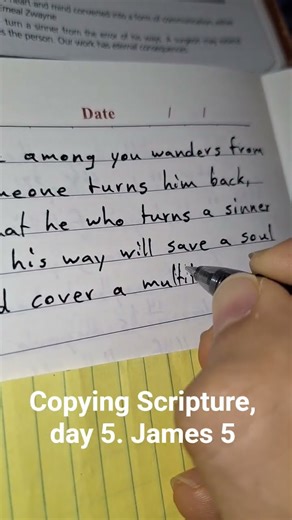 heart and mind converted into a form of communication
Emeal Zwayne
turn a sinner from the error of his ways. A surgeon may extend
the person. Our work has eternal consequences.
Date / /
among you wanders from
meone turns him back,
at he who turns a sinner
his way will save a soul
d cover a multit
Copying Scripture,
day 5. James 5